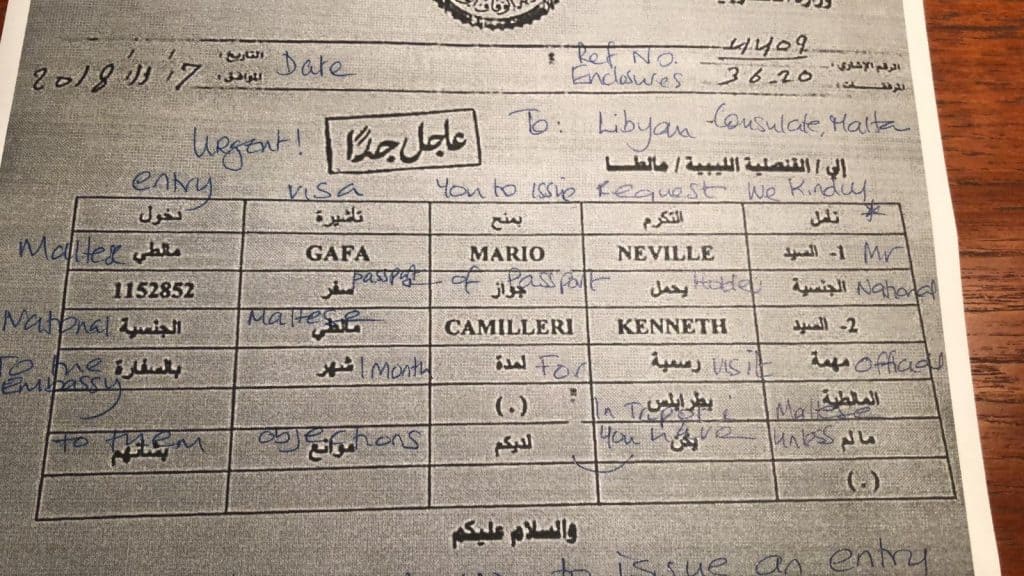 الرقم الإشاري: 4409 Ref No. التاريخ: Date
المرفقات: 36.20 Enclosures الموافق: 17/11/2018
To: Libyan Consulate, Malta
Urgent! عاجل جدًا
إلي/ القنصلية الليبية / مالطا
entry visa You to issue Request We Kindly
نأمل التكرم بمنح تأشيرة دخول *
1- السيد NEVILLE MARIO GAFA مالطي Mr Maltese
passport of Passport Holder National
الجنسية يحمل جواز سفر 1152852
2- السيد KENNETH CAMILLERI مالطي الجنسية Maltese National
مهمة رسمية لمدة شهر بالسفارة Official visit For 1 Month To the Embassy
المالطية بطرابلس (.) In Tripoli Maltese
to them objections You have unless
ما لم يكن لديكم موانع بشأنهم
(.)
والسلام عليكم
to issue an entry